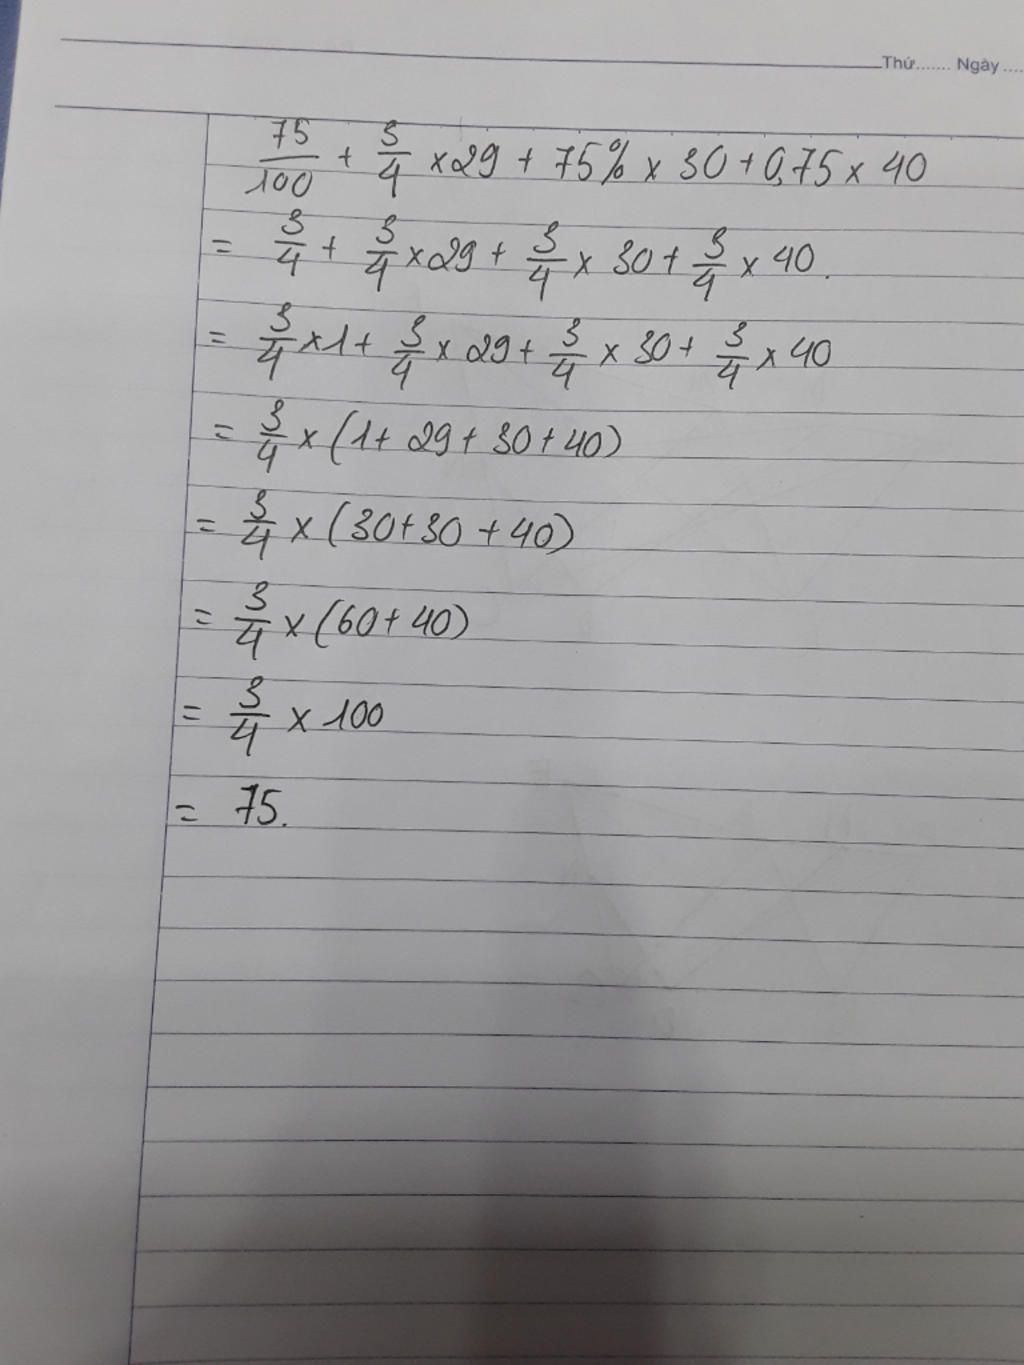 Thứ....... Ngày ....
75/100 + 3/4 × 29 + 75% × 30 + 0,75 × 40
= 3/4 + 3/4 × 29 + 3/4 × 30 + 3/4 × 40.
= 3/4 × 1 + 3/4 × 29 + 3/4 × 30 + 3/4 × 40
= 3/4 × (1 + 29 + 30 + 40)
= 3/4 × (30 + 30 + 40)
= 3/4 × (60 + 40)
= 3/4 × 100
= 75.